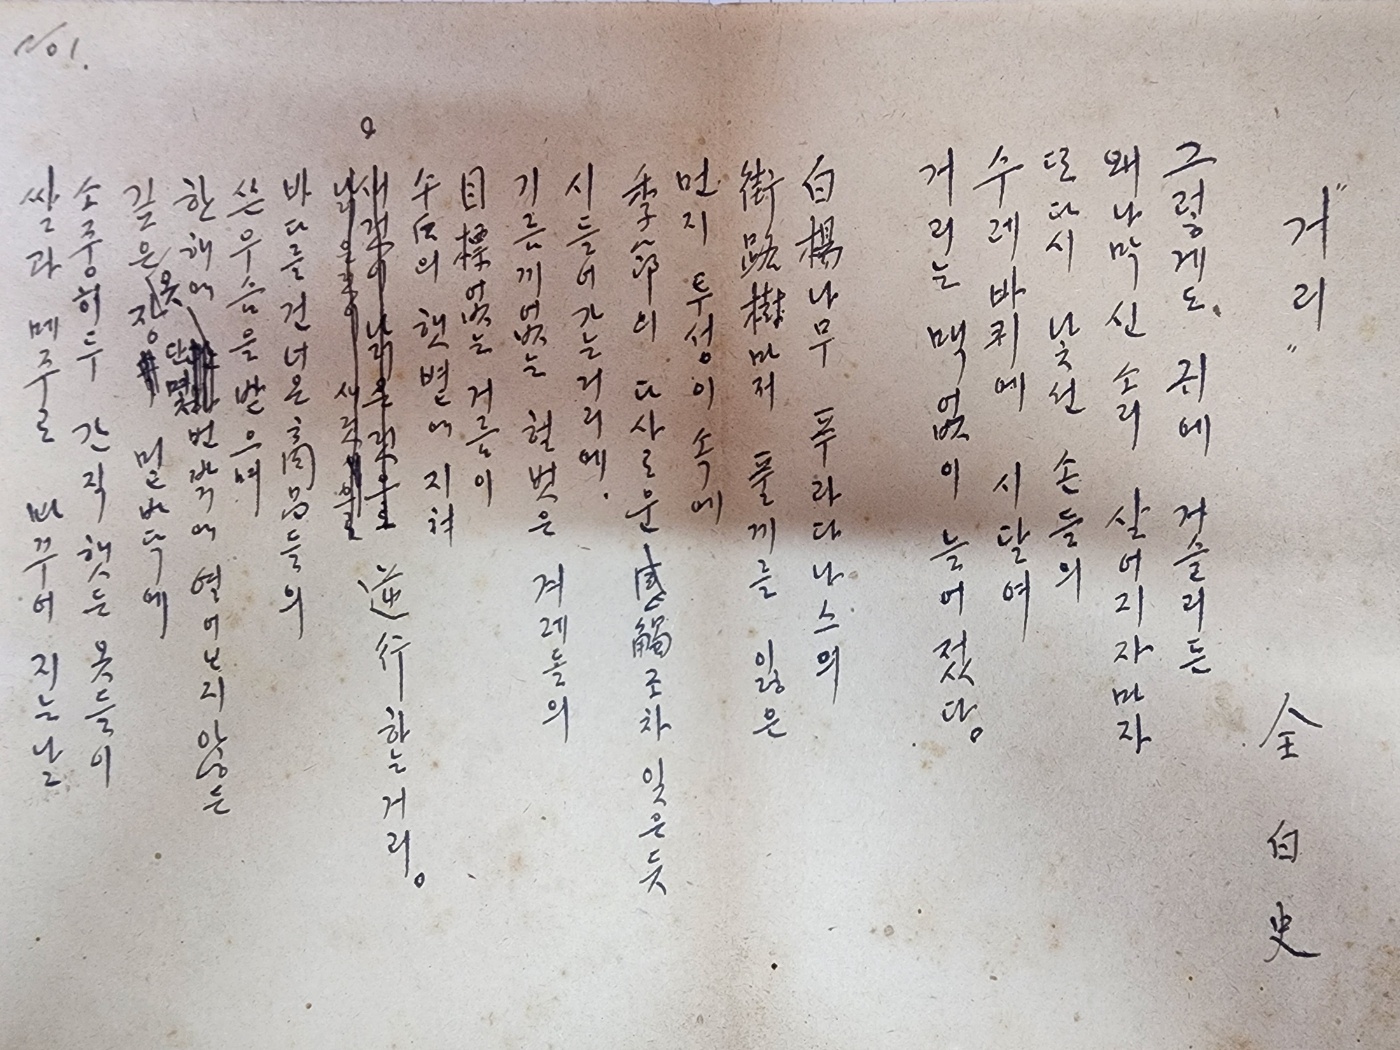 No1.
"거리"
全白史
그렇게도 귀에 거슬리든
왜나막신 소리 살어지자마자
또다시 낯선 손들의
수레바퀴에 시달여
거리는 맥없이 늘어젔다。
白楊나무 푸라다나스의
街路樹마저 풀끼를 잃은
먼지 투성이 속에
季節의 다사로운 感觸조차 잊은듯
시들어가는거리에.
기름끼없는 헐벗은 겨레들의
目標없는 거름이
午后의 햇볕에 지처
逆行하는거리。
바다를 건너온 商品들의
싼우슴을 받으며
한해에 단 몇번밖에 열어보지않든
깊은 옷장 밑바닥에
소중히두 간직햇든 옷들이
쌀과 메주로 바꾸어 지는날